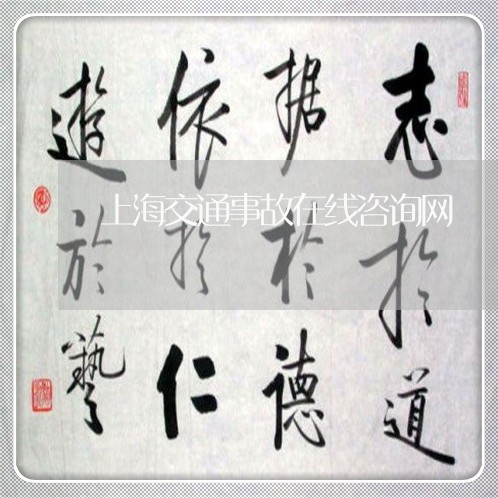 志於道
据於德
依於仁
遊於藝
上海交通事故在线咨询网